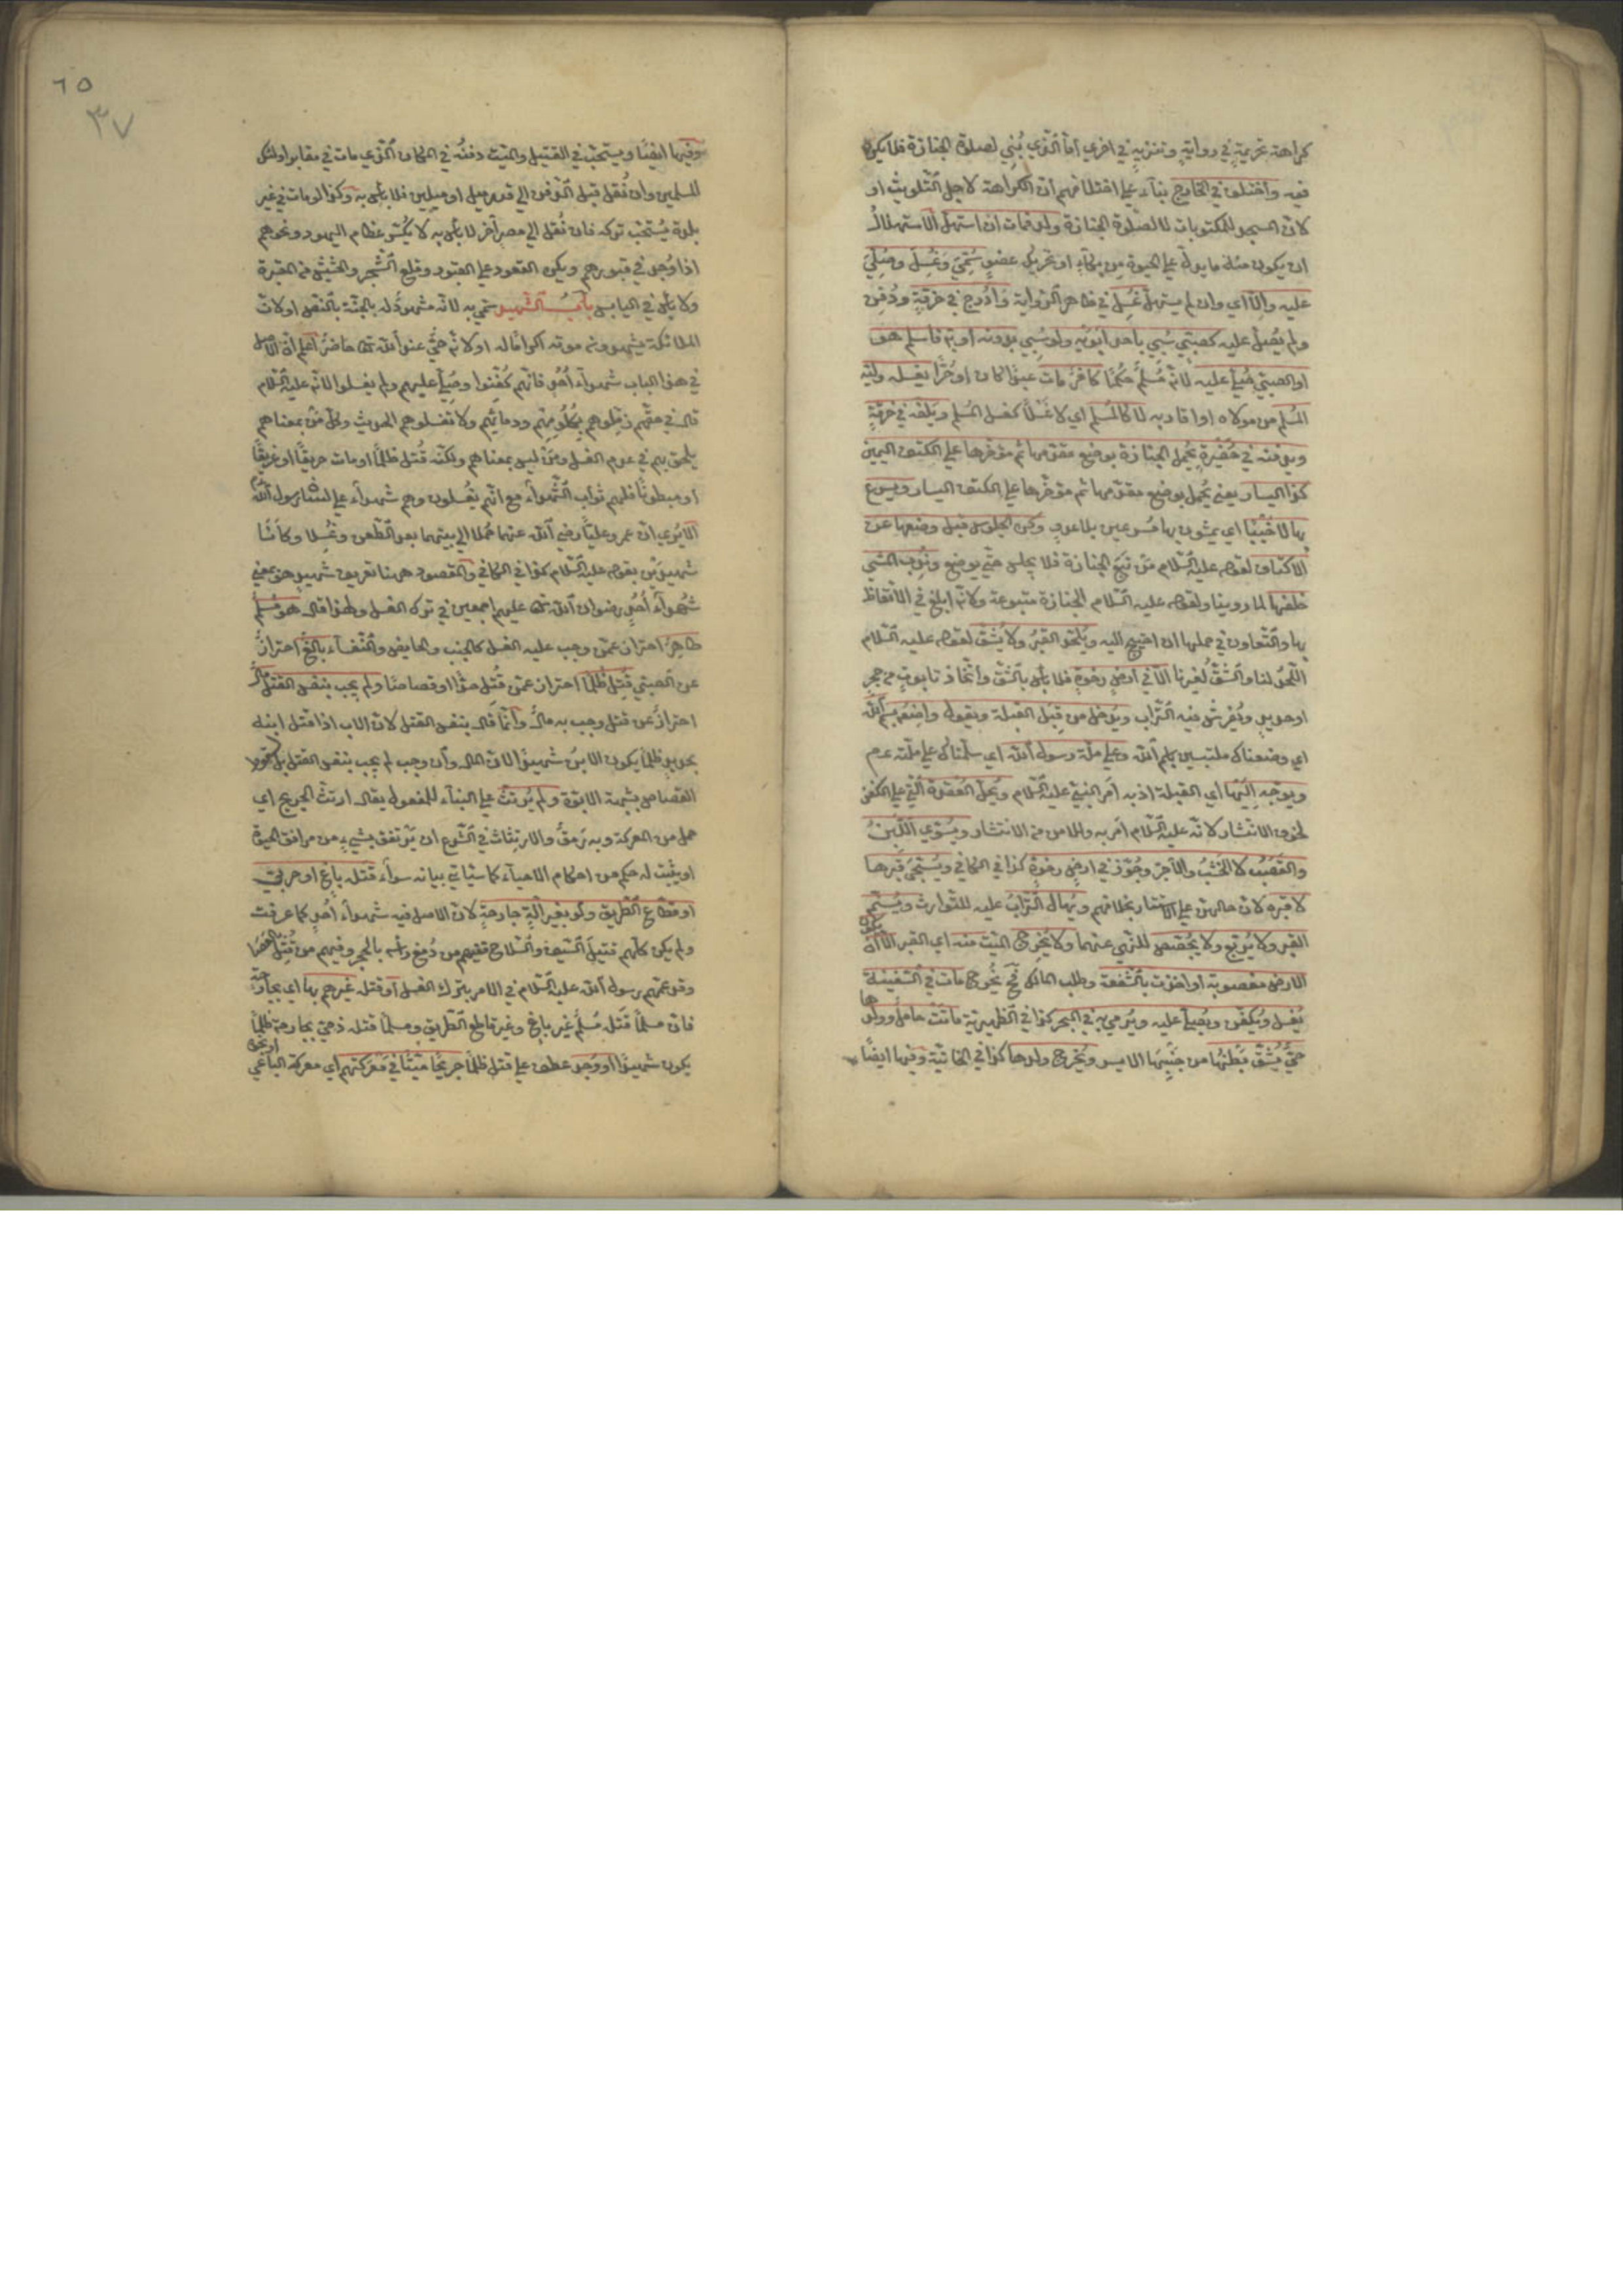 كراهة تحريمية في رواية وتنزيه في اخرى أما الذي بُني لصلوة الجنازة فلا يكره
فيه واختلف في الخارج بناء على اختلافهم أن الكراهة لاجل التلويث او
لان المسجد للمكتوبات لا لصلوة الجنازة ولد فمات ان استهل الاستهلال
ان يكون منه ما يدل على الحيوة من بكاء او تحريك عضو سُمّي وغُسِل وصُلّي
عليه والّا اي وان لم يستهل غُسِل في ظاهر الرواية وأدرج في خرقة ودُفن
ولم يُصلّ عليه كصبيّ سُبي باحد ابويه ولو سُبي بدونه او به فاسلم هو
او الصبيّ صُلّي عليه لانه مُسلم حُكما كافر مات عبدا كان او حُرّا يغسله وليّه
المُسلم من مولاه او اقاربه لا كالمُسلم اي لا غَسلا كغسل المُسلم ويلفّه في خرقةٍ
ويدفنه في حُفَيرة يُحمل الجنازة بوضع مقدّمها ثم مؤخّرها على الكتف اليمين
كذا اليسار يعني يُحمل بوضع مقدّمها ثم مؤخّرها على الكتف اليسار ويسرع
بها لا خَبَبًا اي يمشون بها مُسرعين بلا عدوٍ وكره الجلوس قبل وضعها عن
الاكتاف لقوله عليه السّلام مَن تبع الجنازة فلا يجلس حتّى يوضع ونُدِب المشي
خلفها لما روينا ولقوله عليه السّلام الجنازة متبوعة ولانّه ابلغ في الاتّعاظ
بها والتّعاون في حملها ان احتيج اليه ويُلحد القبرُ ولا يُشَقّ لقوله عليه السّلام
اللّحدُ لنا والشّقّ لغيرنا الّا في ارضٍ رخوةٍ فلا بأس بالشّقّ واتّخاذ تابوتٍ من حجرٍ
او حديدٍ ويُفرش فيه التّراب ويُدخل من قِبل القبلة ويقول واضعه بسم الله
اي وضعناك ملتبسين باسم الله وعلى ملّة رسول الله اي سلّمناك على ملّته عم
ويوجّه اليها اي القبلة اذ به امر النبيّ عليه السّلام ويُحلّ العُقدة الّتي على الكفن
لخوف الانتشار لانّه عليه السّلام امر به وللامن من الانتشار ويُسوّي اللّبِنُ
والقصب لا الخشبُ والآجرّ وجُوّز في ارضٍ رخوةٍ كذا في الكافي ويُسجّى قبرها
لا قبره لان حالهن على الاستتار بخلافهم ويُهال التّرابُ عليه للتّوارث ويُسنّم
القبر ولا يُربّع ولا يُجصّص للنّهي عنهما ولا يُخرج الميّت منه اي القبر الّا أن يكون
الارض مغصوبة او اخذت بالشّفعة وطلب المالك فح يُخرج مات في السّفينة
يُغسل ويُكفن ويُصلّى عليه ويُرمى به في البحر كذا في الظّهيريّة ماتت حامل وولدها
حيّ يُشقّ بطنُها من جنبها الايسر ويُخرج ولدها كذا في الخانيّة وفيها ايضًا
٦٥
٣٧
وفيها ايضًا ويستحبّ في القتيل والميّت دفنُه في المكان الّذي مات في مقابر اولئك
المسلمين وان نُقل قبل الدّفن الى قدر ميل او ميلين فلا بأس به وكذا لو مات في غير
بلده يُستحبّ تركه فان نُقل الى مصرٍ آخر لا بأس به لا يُكسَر عظام اليهود ونحوهم
اذا وُجد في قبورهم ويكره القعود على القبور وقلع الشّجر والحشيش من المقبرة
ولا بأس في اليابس بابُ الشّهيد سُمّي به لانّه مشهودٌ له بالجنّة بالنّصّ او لانّ
الملائكة يشهدون موته اكراما له او لانّه حيّ عند الله تعالى حاضرٌ اعلم انّ الاصل
في هذا الباب شهداءُ اُحُدٍ فانّهم كُفّنوا وصُلّي عليهم ولم يغسلوا لانّه عليه السّلام
قال في حقّهم زمّلوهم بكُلومهم ودمائهم ولا تغسلوهم الحديث وكلّ مَن بمعناهم
يلحق بهم في عدم الغسل ومن ليس بمعناهم ولكنّه قُتل ظلمًا او مات حريقًا او غريقًا
او مبطونًا فلهم ثواب الشّهداء مع انّهم يُغسلون وهم شهداء على لسان رسول الله
الا يُرى انّ عمر وعليًّا رضي الله عنهما حُملا الى بيتهما بعد الطّعن وغُسِلا وكانا
شهيدَين بقوله عليه السّلام كذا في الكافي والمقصود ههنا تعريف شهيدٍ هو بمعنى
شهداءِ اُحُدٍ رضوان الله تعالى عليهم اجمعين في ترك الغسل ولهذا قال هو مُسلمٌ
طاهرٌ احترازٌ عمّن وجب عليه الغسل كالجنب والحايض والنّفساء بالغٌ احترازٌ
عن الصبيّ قُتِل ظُلمًا احترازٌ عمّن قُتل حدًّا او قصاصًا ولم يجب بنفس القتل مالٌ
احترازٌ عن قتلٍ وجب به مالٌ وانّما قال بنفس القتل لانّ الاب اذا قتل ابنه
بحديدٍ ظلمًا يكون الابنُ شهيدًا لانّ المال وان وجب لم يجب بنفس القتل بل بسقوط
القصاص بشبهة الابوّة ولم يُرتثّ على البناء للمفعول يقال ارتثّ الجريح اي
حمل من المعركة وبه رمقٌ والارتثاث في الشّرع ان يرتفق بشيءٍ من مرافق الحيوة
او يثبت له حكم من احكام الاحياء كما سيأتي بيانه سواءٌ قتله باغٍ او حربيّ
او قطّاع الطّريق ولو بغير آلةٍ جارحةٍ لانّ الاصل فيه شهداء اُحُدٍ كما عرفت
ولم يكن كلّهم قتيلَ السّيف والسّلاح ففيهم من دُمغ رأسه بالحجر وفيهم من قُتِل بالعصا
وقد عمّهم رسول الله عليه السّلام في الامر بترك الغسل او قتله غيرهم بها اي بجارحة
فانّ مسلمًا قَتَل مُسلمٌ غير باغٍ وغير قاطع الطّريق ومسلمًا قتله ذمّيّ بجارحةٍ ظلمًا
يكون شهيدًا او وُجد عطف على قتل ظلمًا جريحًا ميّتًا في معركتهم اي معركة الباغي او نحوه